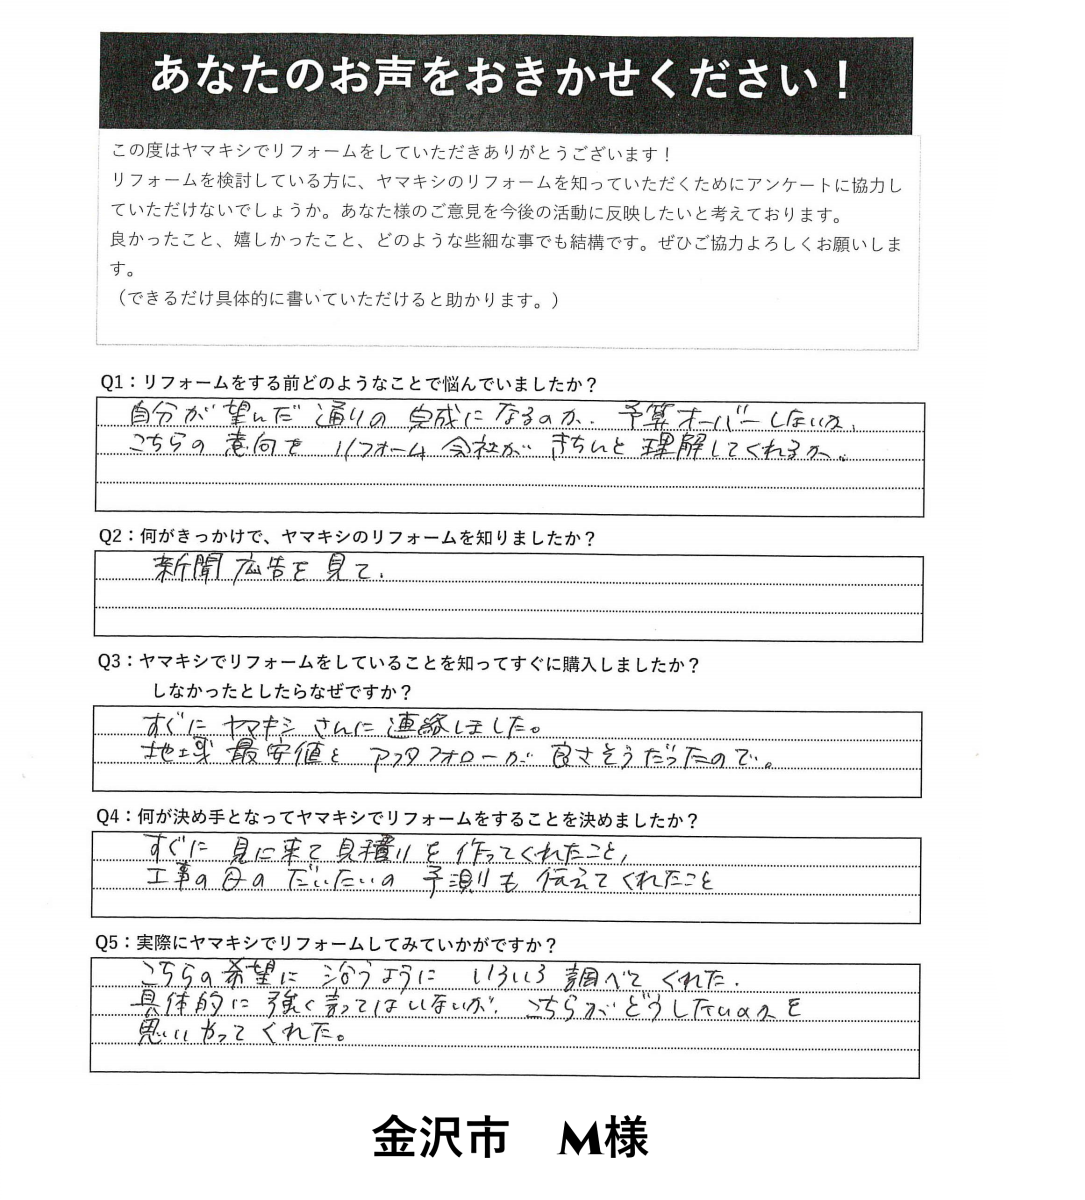 あなたのお声をおきかせください！
この度はヤマキシでリフォームをしていただきありがとうございます！
リフォームを検討している方に、ヤマキシのリフォームを知っていただくためにアンケートに協力し
ていただけないでしょうか。あなた様のご意見を今後の活動に反映したいと考えております。
良かったこと、嬉しかったこと、どのような些細な事でも結構です。ぜひご協力よろしくお願いしま
す。
（できるだけ具体的に書いていただけると助かります。）
Q1：リフォームをする前どのようなことで悩んでいましたか？
自分が望んだ通りの完成になるのか、予算オーバーしないか、
こちらの意向をリフォーム会社がきちんと理解してくれるか。
Q2：何がきっかけで、ヤマキシのリフォームを知りましたか？
新聞広告を見て、
Q3：ヤマキシでリフォームをしていることを知ってすぐに購入しましたか？
しなかったとしたらなぜですか？
すぐにヤマキシさんに連絡しました。
地域最安値とアフタフォローが良さそうだったので。
Q4：何が決め手となってヤマキシでリフォームをすることを決めましたか？
すぐに見に来て見積りを作ってくれたこと、
工事の日のだいたいの予測も伝えてくれたこと
Q5：実際にヤマキシでリフォームしてみていかがですか？
こちらの希望に沿うようにいろいろ調べてくれた。
具体的に強く言ってはいないが、こちらがどうしたいのかを
思いやってくれた。
金沢市　M様